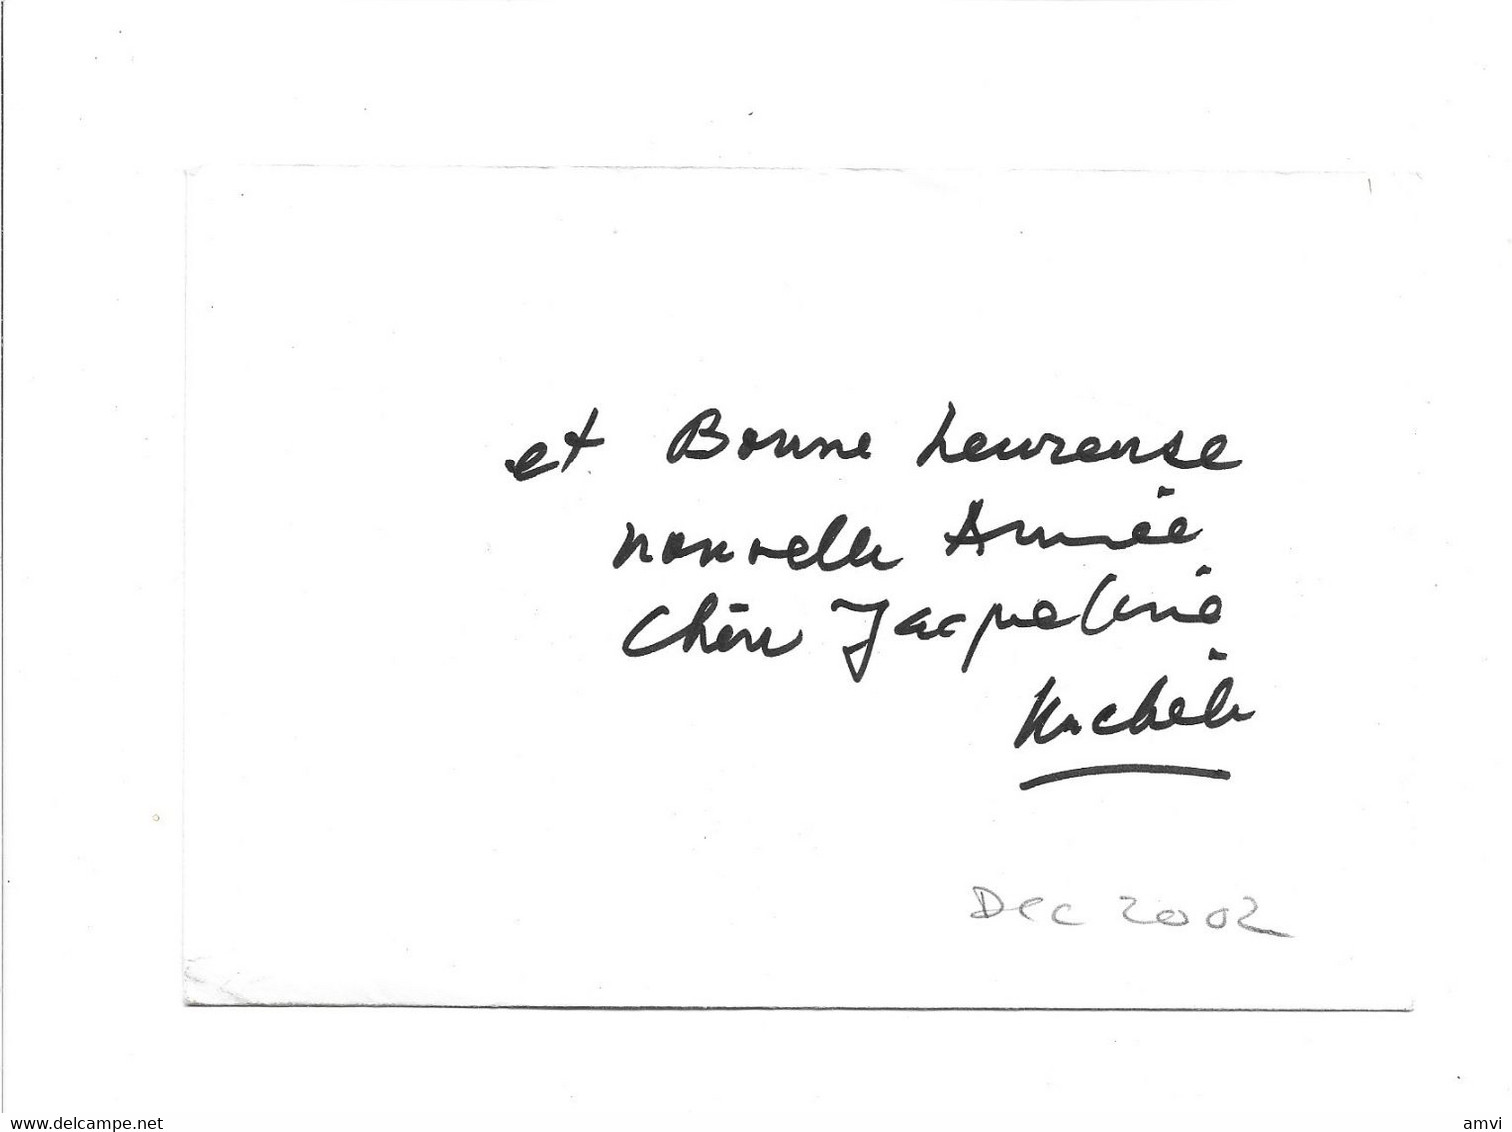 et Bonne heureuse
nouvelle Année
Chère Jacqueline
Michèle
Dec 2002
www.delcampe.net
amvi